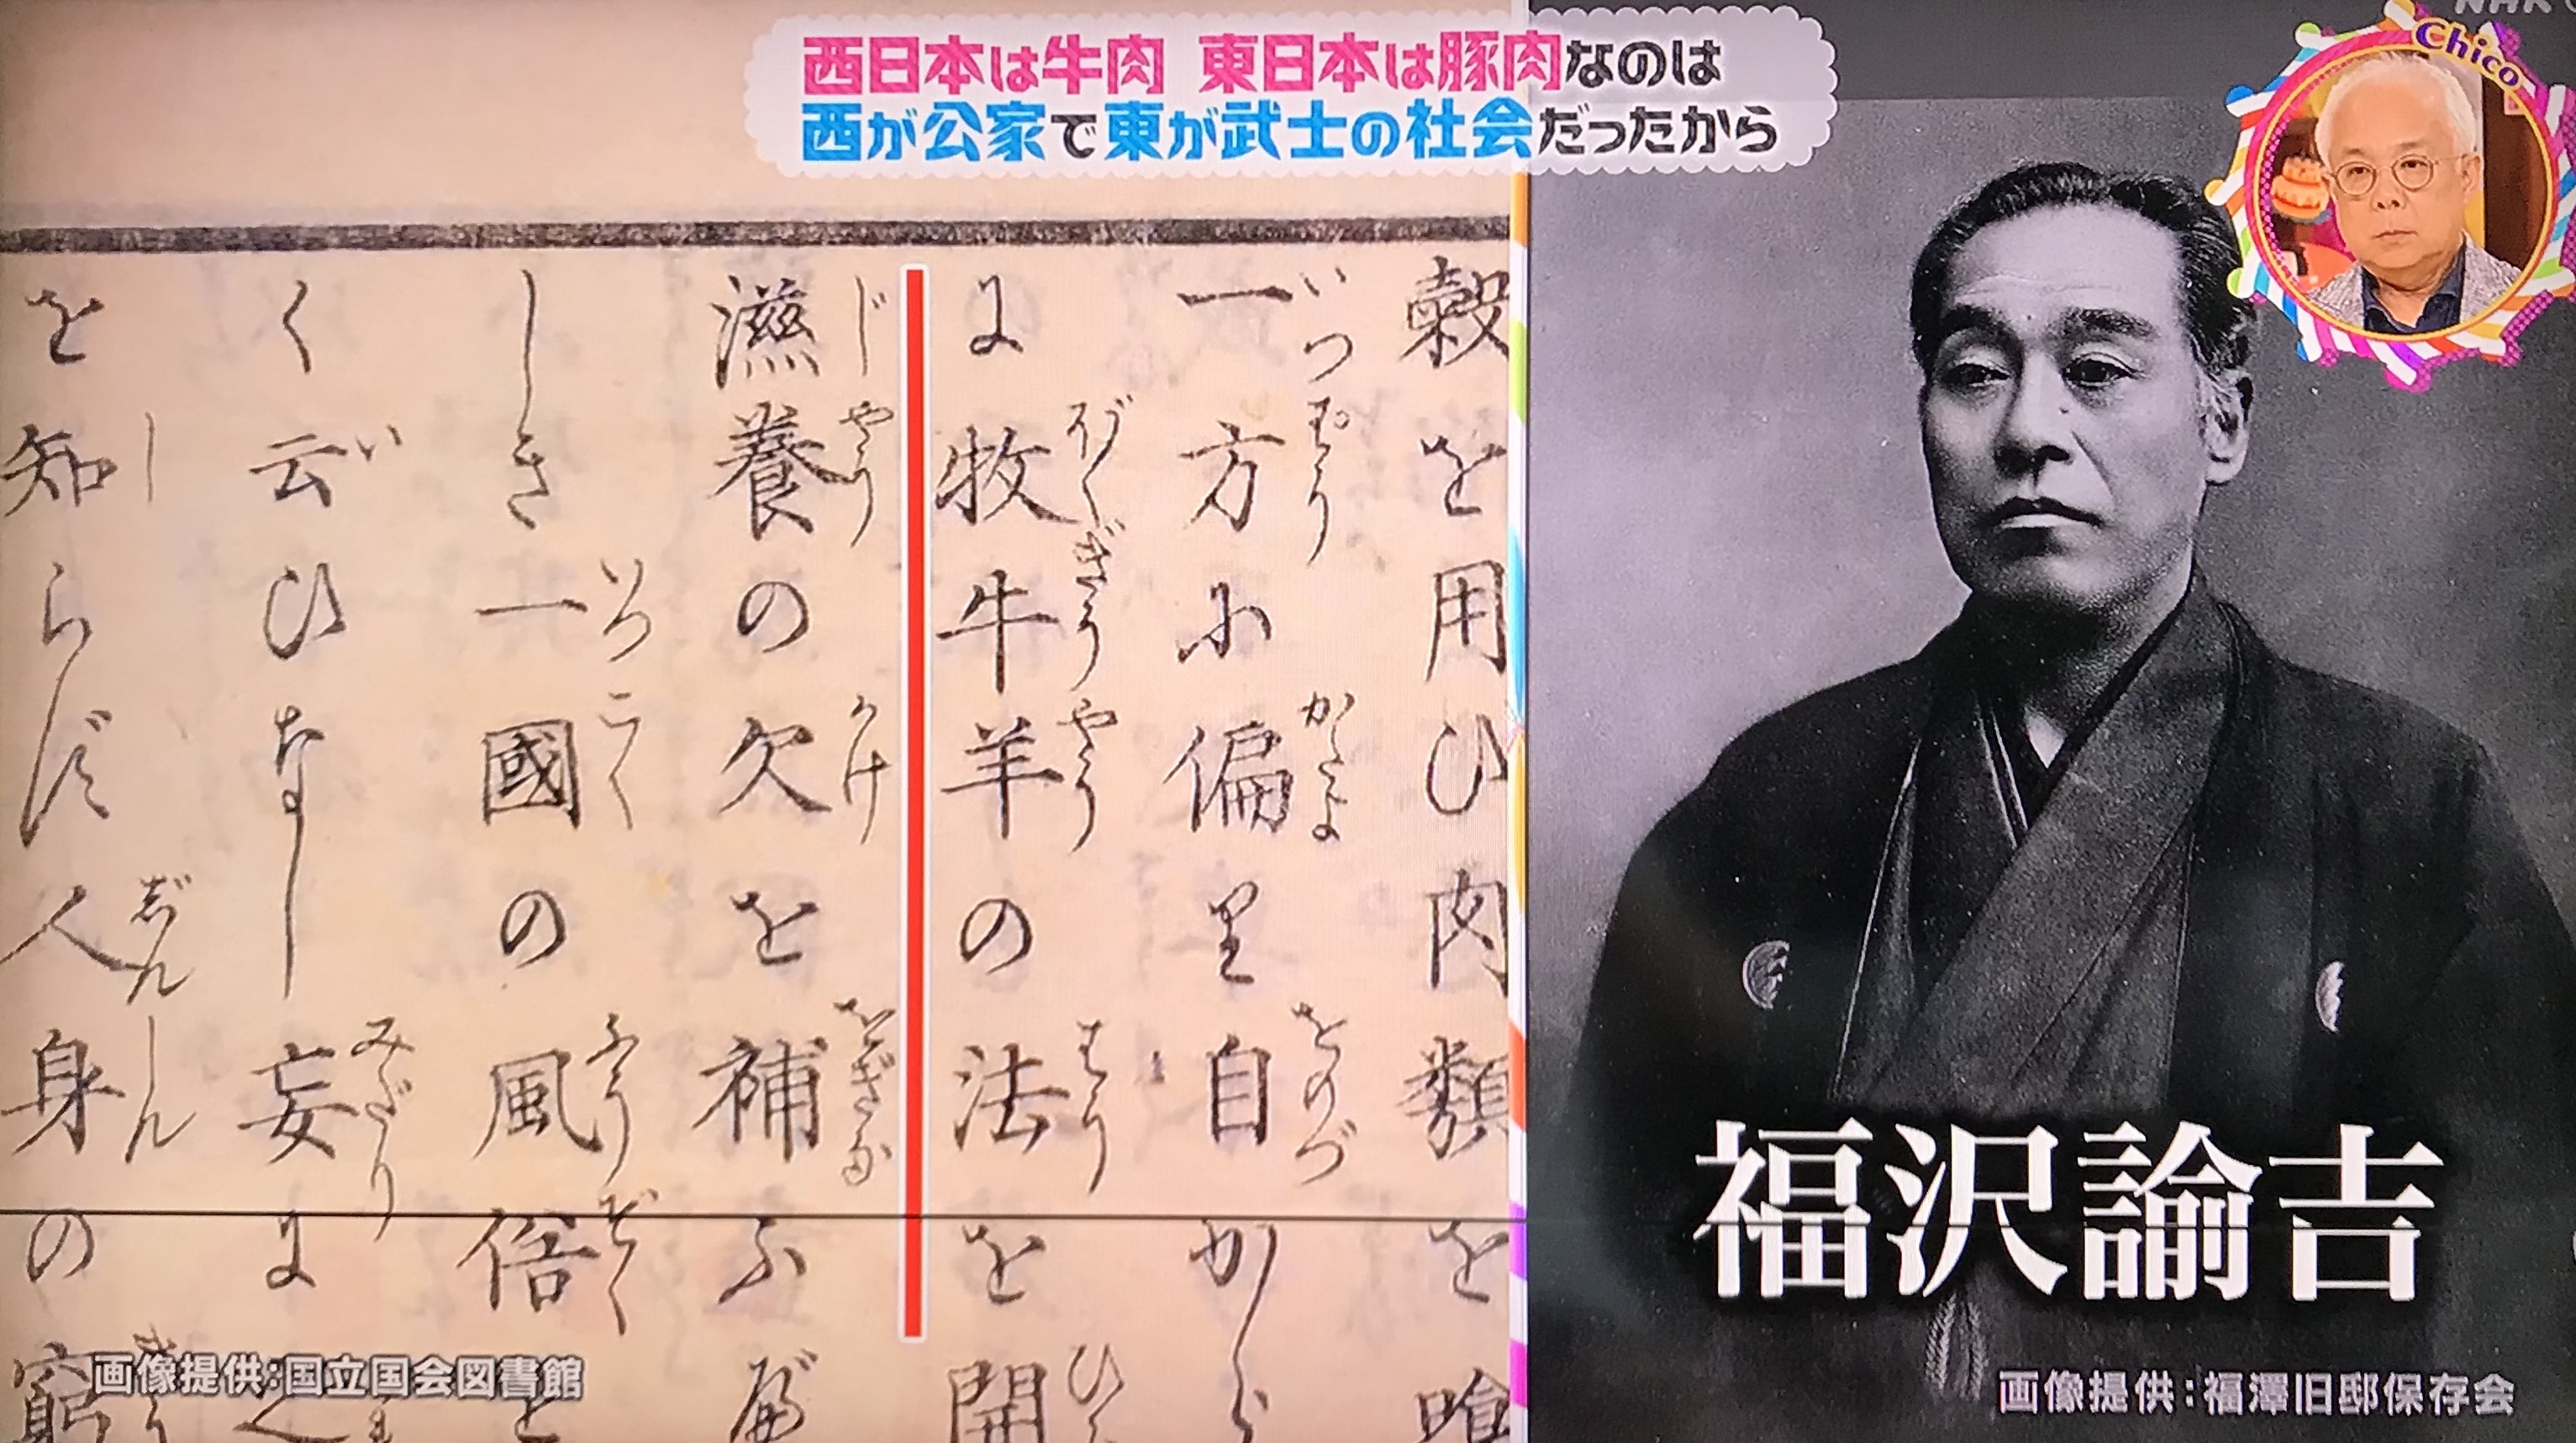 西日本は牛肉 東日本は豚肉なのは
西が公家で東が武士の社会だったから
NHK
Chico
穀を用ひ肉類を喰
一方に偏り自から
いつぱうかたよをのづ
に牧牛羊の法を開
ぼくぎうやうはうひら
滋養の欠を補ふべ
じやうかけをぎな
しき一國の風俗を
いつこくふうぞく
く云ひなし妄に
いみだり
を知らず人身の窮
しじんしんきう
福沢諭吉
画像提供:国立国会図書館
画像提供:福澤旧邸保存会